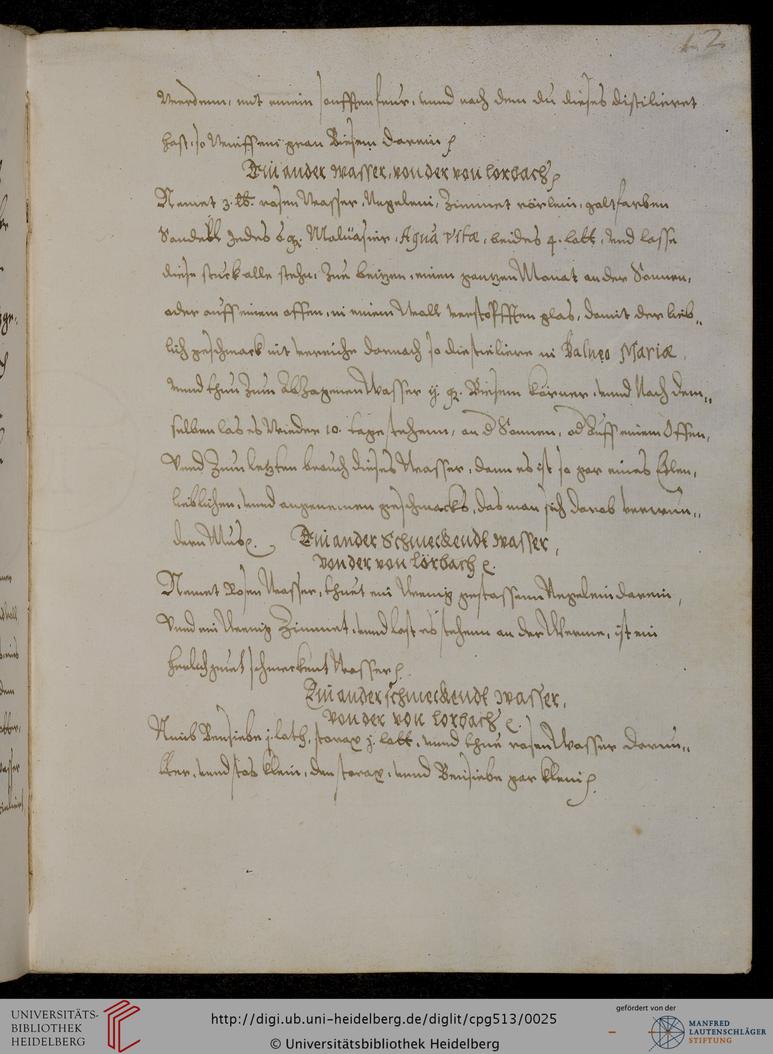 12
werdenn, mit einem sanfften feur, unnd nach dem du dieses distilieret
hast, so gran Biesem darein
Ein ander wasser, von der von Lorbach
Nemet 3. lb. rosen wasser, Negelein, Zimmet rörlein, goltfarben
Sandell jedes 6 q. Malüasier, Aqua vitæ, beides 4. lott, und lasse
diese stuck alle stehn, zue beitzen, einen gantzen Monat an der Sonnen,
oder auff einem offen, in einem woll verstopfften glas, damit der lieb„
lich geschmack nit verrieche darnach so distieliere in Balneo Mariæ.
unnd thun zum Abzogenen wasser ij. q. Biesem körner, unnd nach dem„
selben las es wieder 10. tage stehenn, an d Sonnen, od auff einem Offen,
Vnnd zum letzten brauch dieses wasser, dann es ist so gar eines Edlen,
lieblichen, unnd angenemen geschmacks, das man sich darab verwun„
dern Mus. Ein ander Schmeckendt wasser,
von der von Lörbach
Nemet Rosen wasser, thuet ein wenig gestossenn Negelein darein,
Vnnd ein wenig Zimmet, unnd last es stehenn an der Werme, ist ein
schmeckent wasser
Ein ander schmeckendt wasser,
von der von Lorbach
Nimb Bensiebe j. loth, storax j. lott, unnd thue rosen wasser darun„
der, unnd stos klein, den storax, unnd Bensiebe gar klein
UNIVERSITÄTS-
BIBLIOTHEK
HEIDELBERG
http://digi.ub.uni-heidelberg.de/diglit/cpg513/0025
© Universitätsbibliothek Heidelberg
gefördert von der
MANFRED
LAUTENSCHLÄGER
STIFTUNG